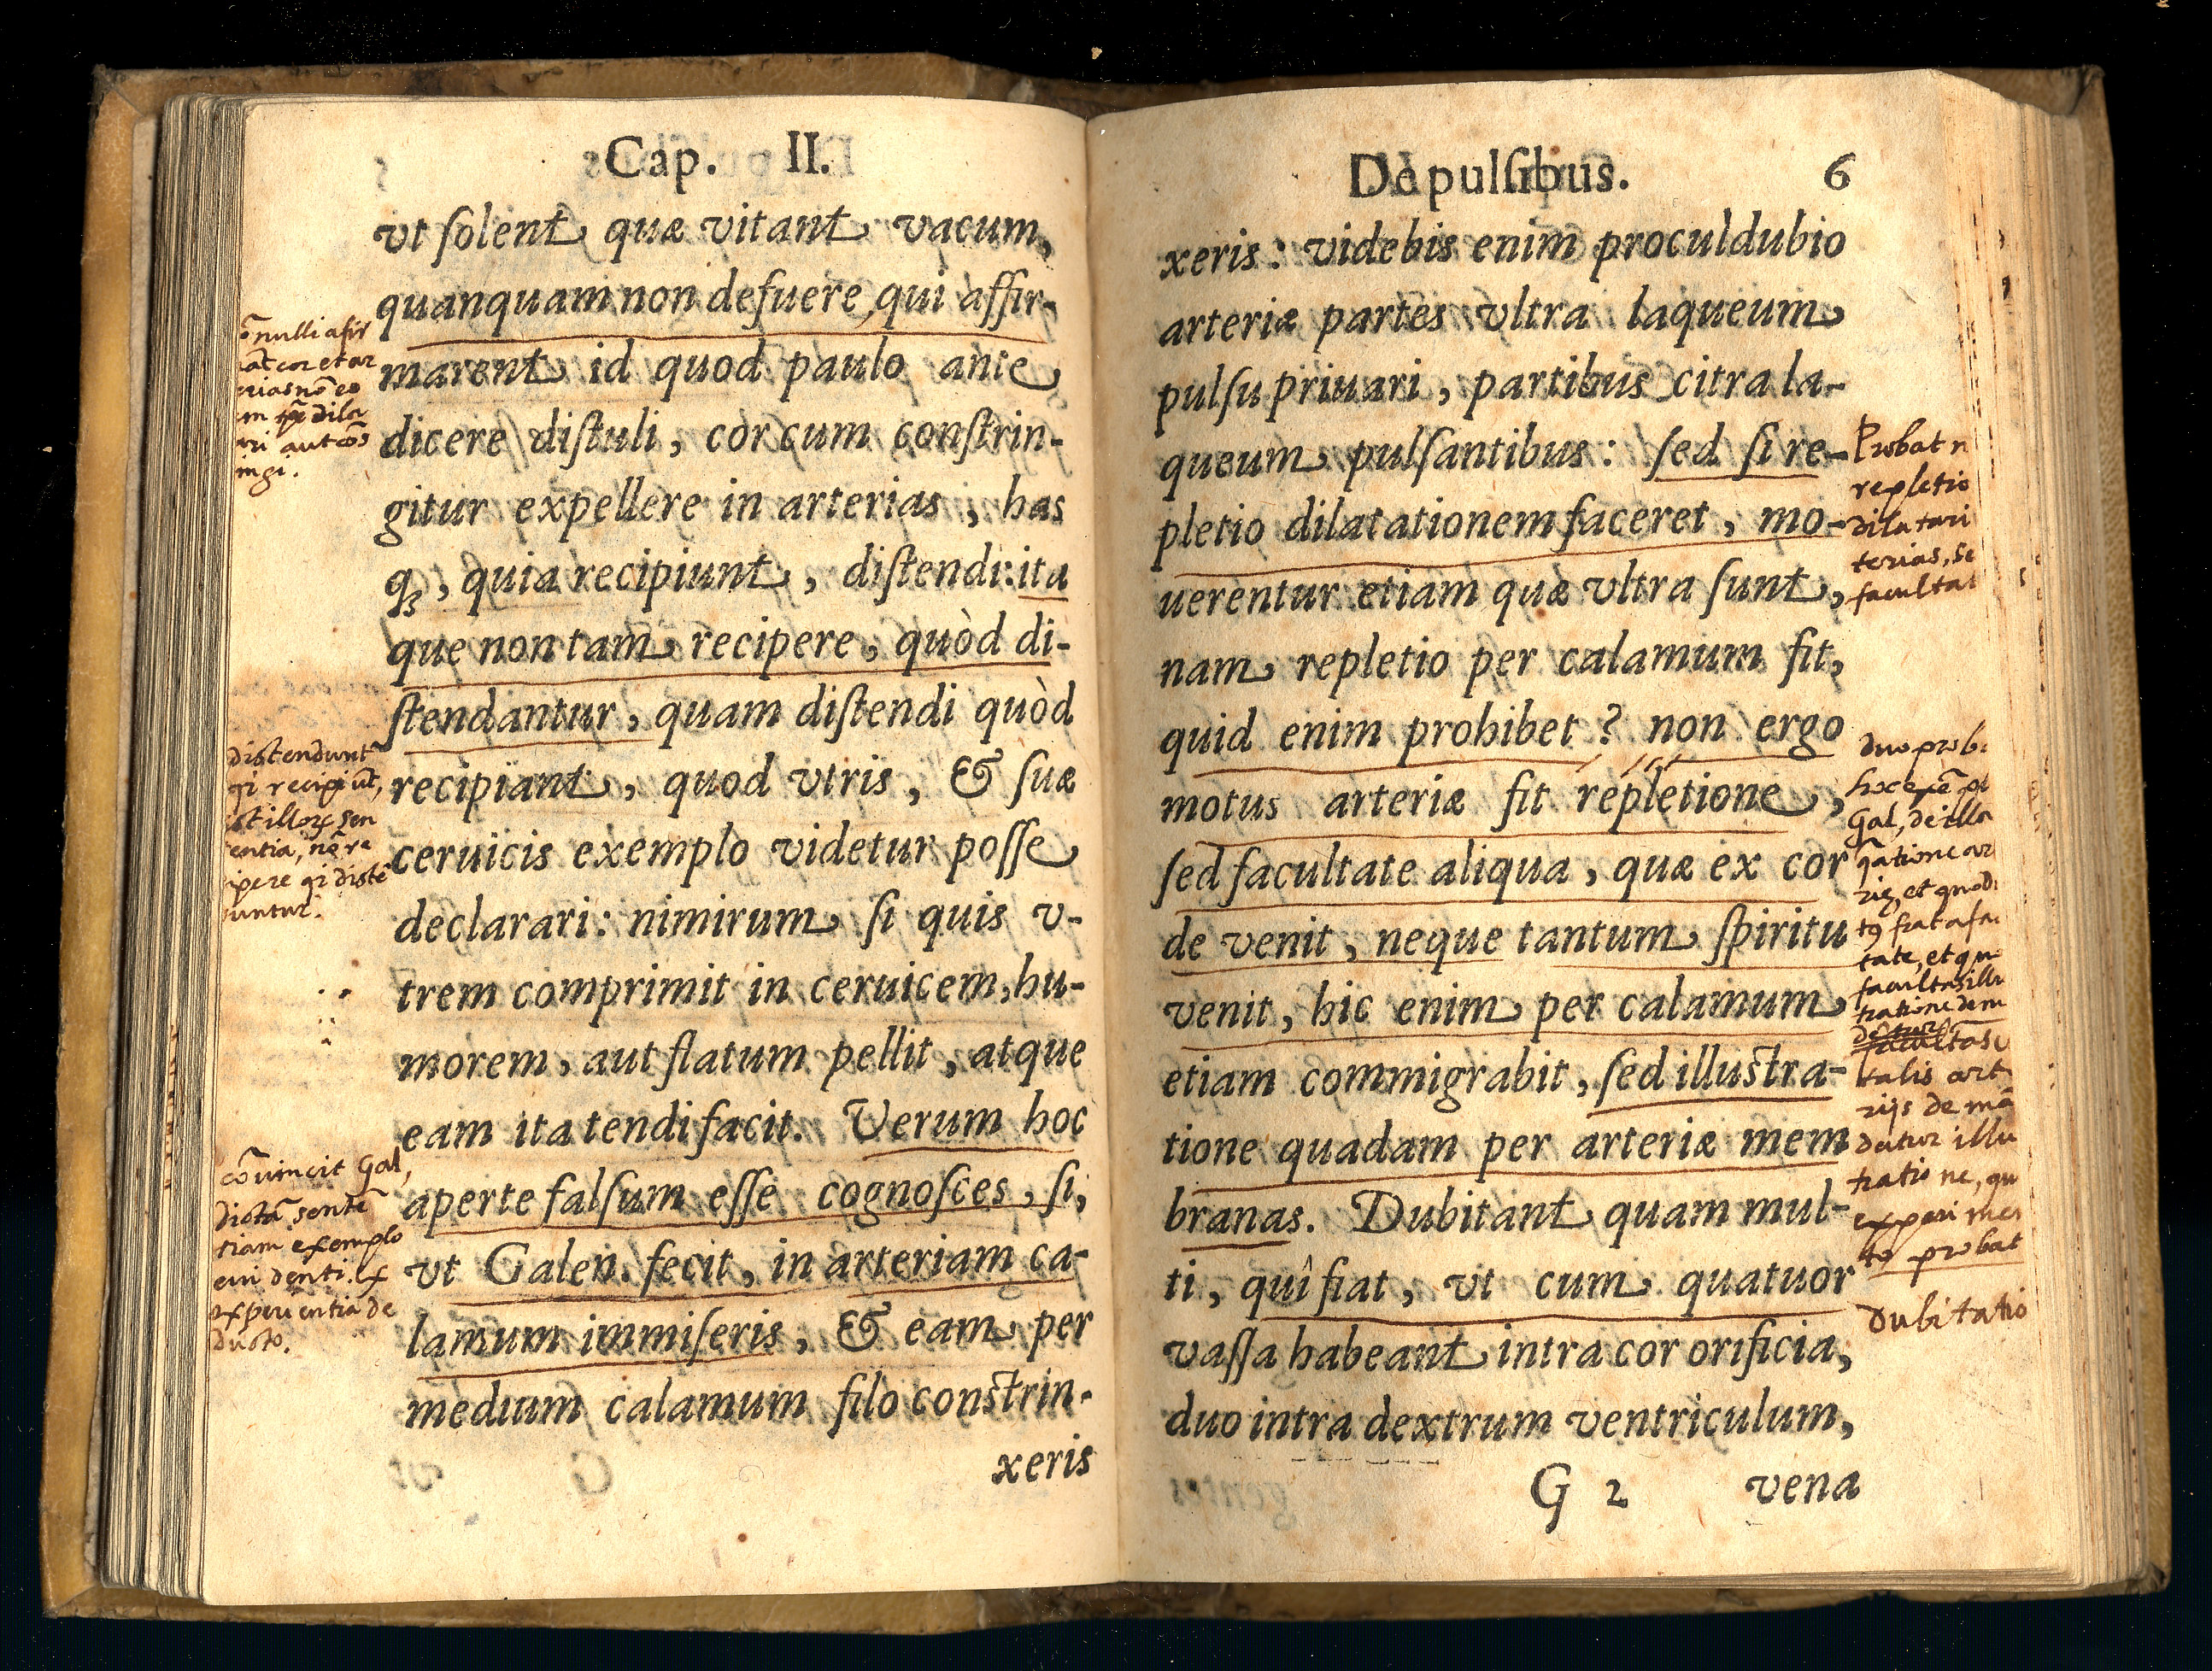 Cap. II.
vt ſolent quæ vitant vacum,
quanquam non defuere qui affir-
marent id quod paulo ante
dicere diſtuli, cor cum conſtrin-
gitur expellere in arterias, has
qȝ, quia recipiunt, diſtendi: ita
que non tam recipere, quòd di-
ſtendantur, quam diſtendi quòd
recipiant, quod vtris, & ſuæ
ceruicis exemplo videtur poſſe
declarari: nimirum ſi quis v-
trem comprimit in ceruicem, hu-
morem, aut flatum pellit, atque
eam ita tendi facit. Verum hoc
aperte falſum eſſe cognoſces, ſi,
vt Galen. fecit, in arteriam ca-
lamum immiſeris, & eam per
medium calamum filo conſtrin-
xeris
nulli afir
cor et ar
dila
aut
ingi.
distendunt
recipiūt,
illorȝ sen
entia, nō re
ipere
untur.
cōuincit Gal,
dictā sentē
tiam exemplo
eui denti. ex
experientia de
ducto.
De pulſibus. 6
xeris: videbis enim proculdubio
arteriæ partes vltra laqueum
pulſu priuari, partibus citra la-
queum pulſantibus: ſed ſi re-
pletio dilatationem faceret, mo-
uerentur etiam quæ vltra ſunt,
nam repletio per calamum fit,
quid enim prohibet? non ergo
motus arteriæ fit repletione,
ſed facultate aliqua, quæ ex cor
de venit, neque tantum ſpiritu
venit, hic enim per calamum
etiam commigrabit, ſed illuſtra-
tione quadam per arteriæ mem
branas. Dubitant quam mul-
ti, quî fiat, vt cum quatuor
vaſſa habeant intra cor orificia,
duo intra dextrum ventriculum,
G 2 vena
Probat n
repletio
dilatari
terias, se
facultat
duo prob
Gal, de illa
et quod
tate, et qu
facultas illu
tratione dem
talis art
rijs de mā
datur illu
tratio ne, qu
experi men
to probat
dubitatio